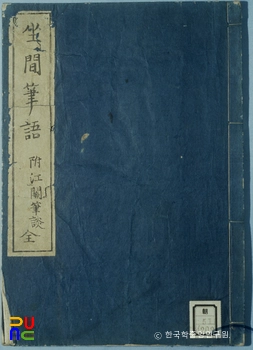 坐間筆語
附江關筆談
全
PUAC
© 한국학중앙연구원